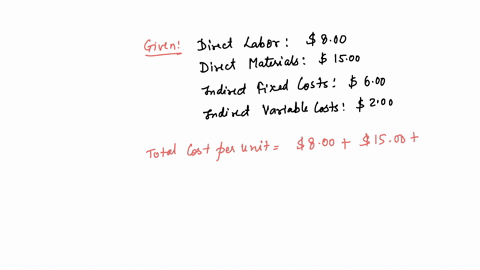 Given: Direct Labor: $8.00
Direct Materials: $15.00
Indirect Fixed Costs: $6.00
Indirect Variable Costs: $2.00
Total Cost per unit = $8.00 + $15.00 +